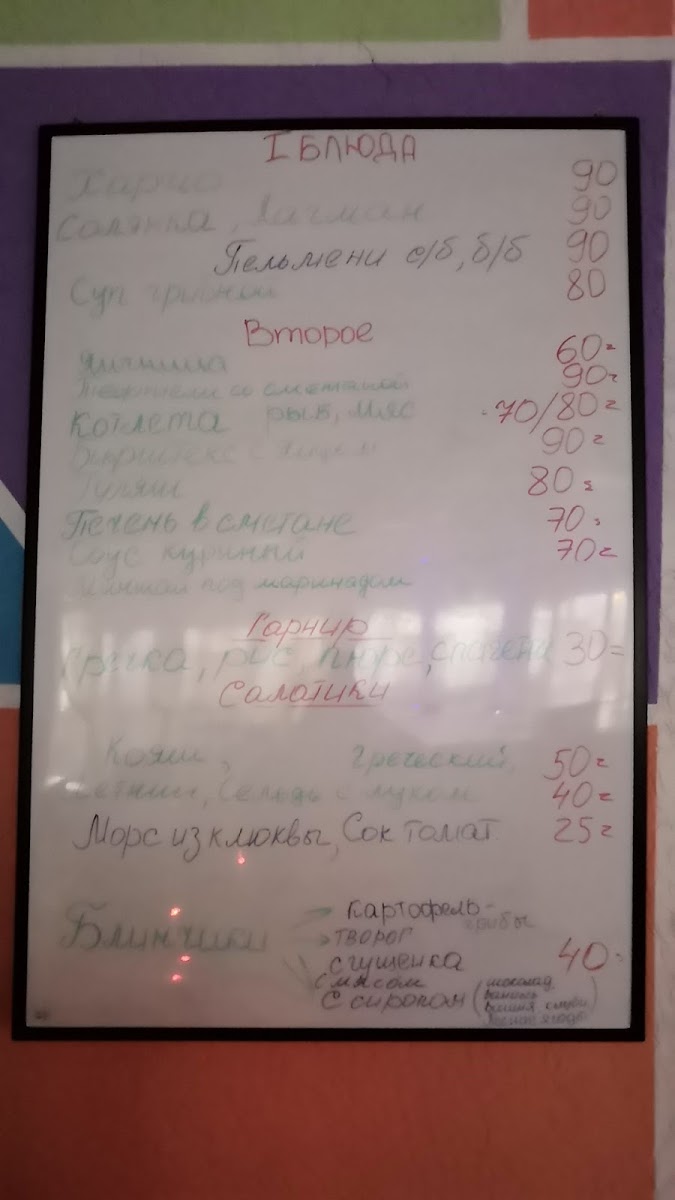 I БЛЮДА
Харчо 90
Солянка, Лагман 90
Пельмени с/б, б/б 90
Суп грибной 80
Второе
Яичница 60=
Тефтели со сметаной 90=
Котлета рыб, мяс 70/80=
Бифштекс с яйцом 90=
Гуляш 80=
Печень в сметане 70=
Соус куриный 70=
Минтай под маринадом
Гарнир
Гречка, рис, пюре, спагети 30=
Салатики
Кояш, Греческий, 50=
Летний, Сельдь с луком 40=
Морс из клюквы, Сок томат 25=
Блинчики картофель-
грибы
творог
сгущенка 40=
с мясом
С сиропом (шоколад,
ваниль